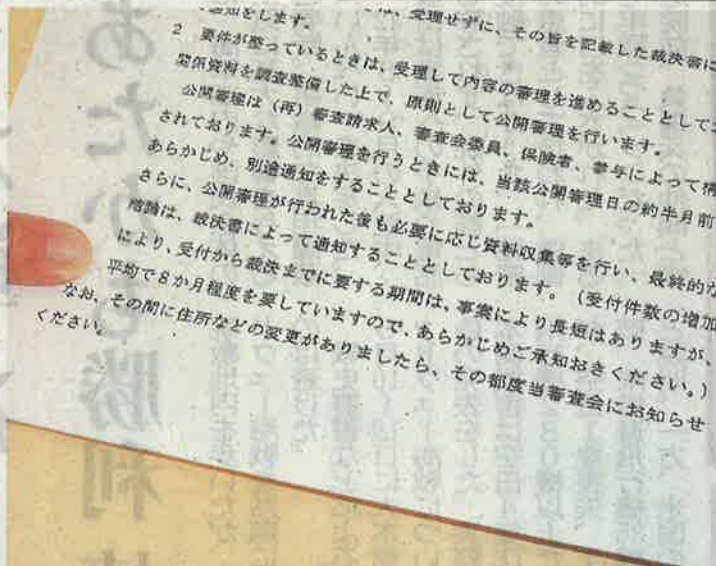 通知をします。
は、受理せずに、その旨を記載した裁決書に
2 要件が整っているときは、受理して内容の審理を進めることとして
関係資料を調査整備した上で、原則として公開審理を行います。
公開審理は（再）審査請求人、審査会委員、保険者、参与によって構
されております。公開審理を行うときには、当該公開審理日の約半月前
あらかじめ、別途通知をすることとしております。
さらに、公開審理が行われた後も必要に応じ資料収集等を行い、最終的な
結論は、裁決書によって通知することとしております。（受付件数の増加
により、受付から裁決までに要する期間は、事案により長短はありますが、
平均で８か月程度を要していますので、あらかじめご承知おきください。）
なお、その間に住所などの変更がありましたら、その都度当審査会にお知らせ
ください。